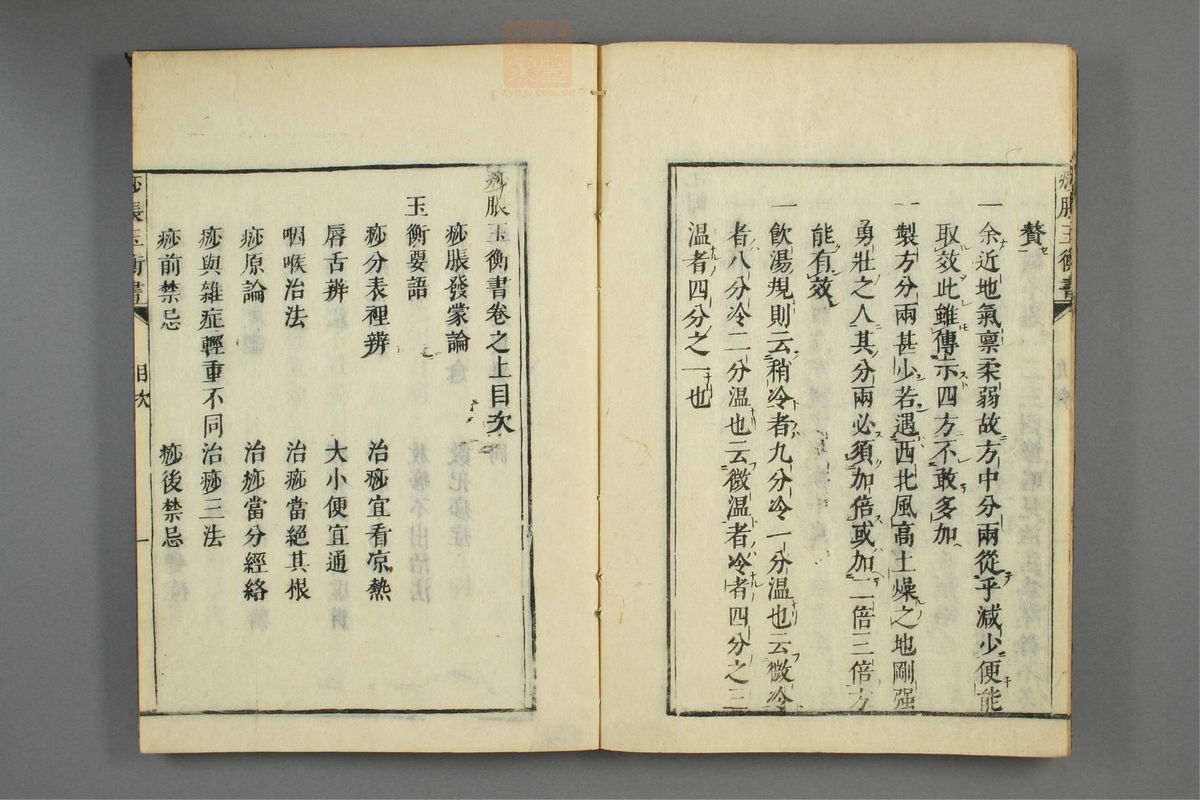 贅
一 余近地氣禀柔弱故方中分兩從乎減少便能
取效此雖傳示四方不敢多加
一 製方分兩甚少若遇西北風高土燥之地剛强
勇壯之人其分兩必須加倍或加二倍三倍方
能有效
一 飲湯規則云稍冷者九分冷一分温也云微冷
者八分冷二分温也云微温者冷者四分之三
温者四分之一也
痧脹玉衡書卷之上目次
痧脹發蒙論
玉衡要語
痧分表裡辨 治痧宜看凉熱
唇舌辨 大小便宜通
咽喉治法 治痧當絕其根
痧原論 治痧當分經絡
痧與雜症輕重不同 治痧三法
痧前禁忌 痧後禁忌
痧脹玉衡書 目次 一
zygj.com.cn